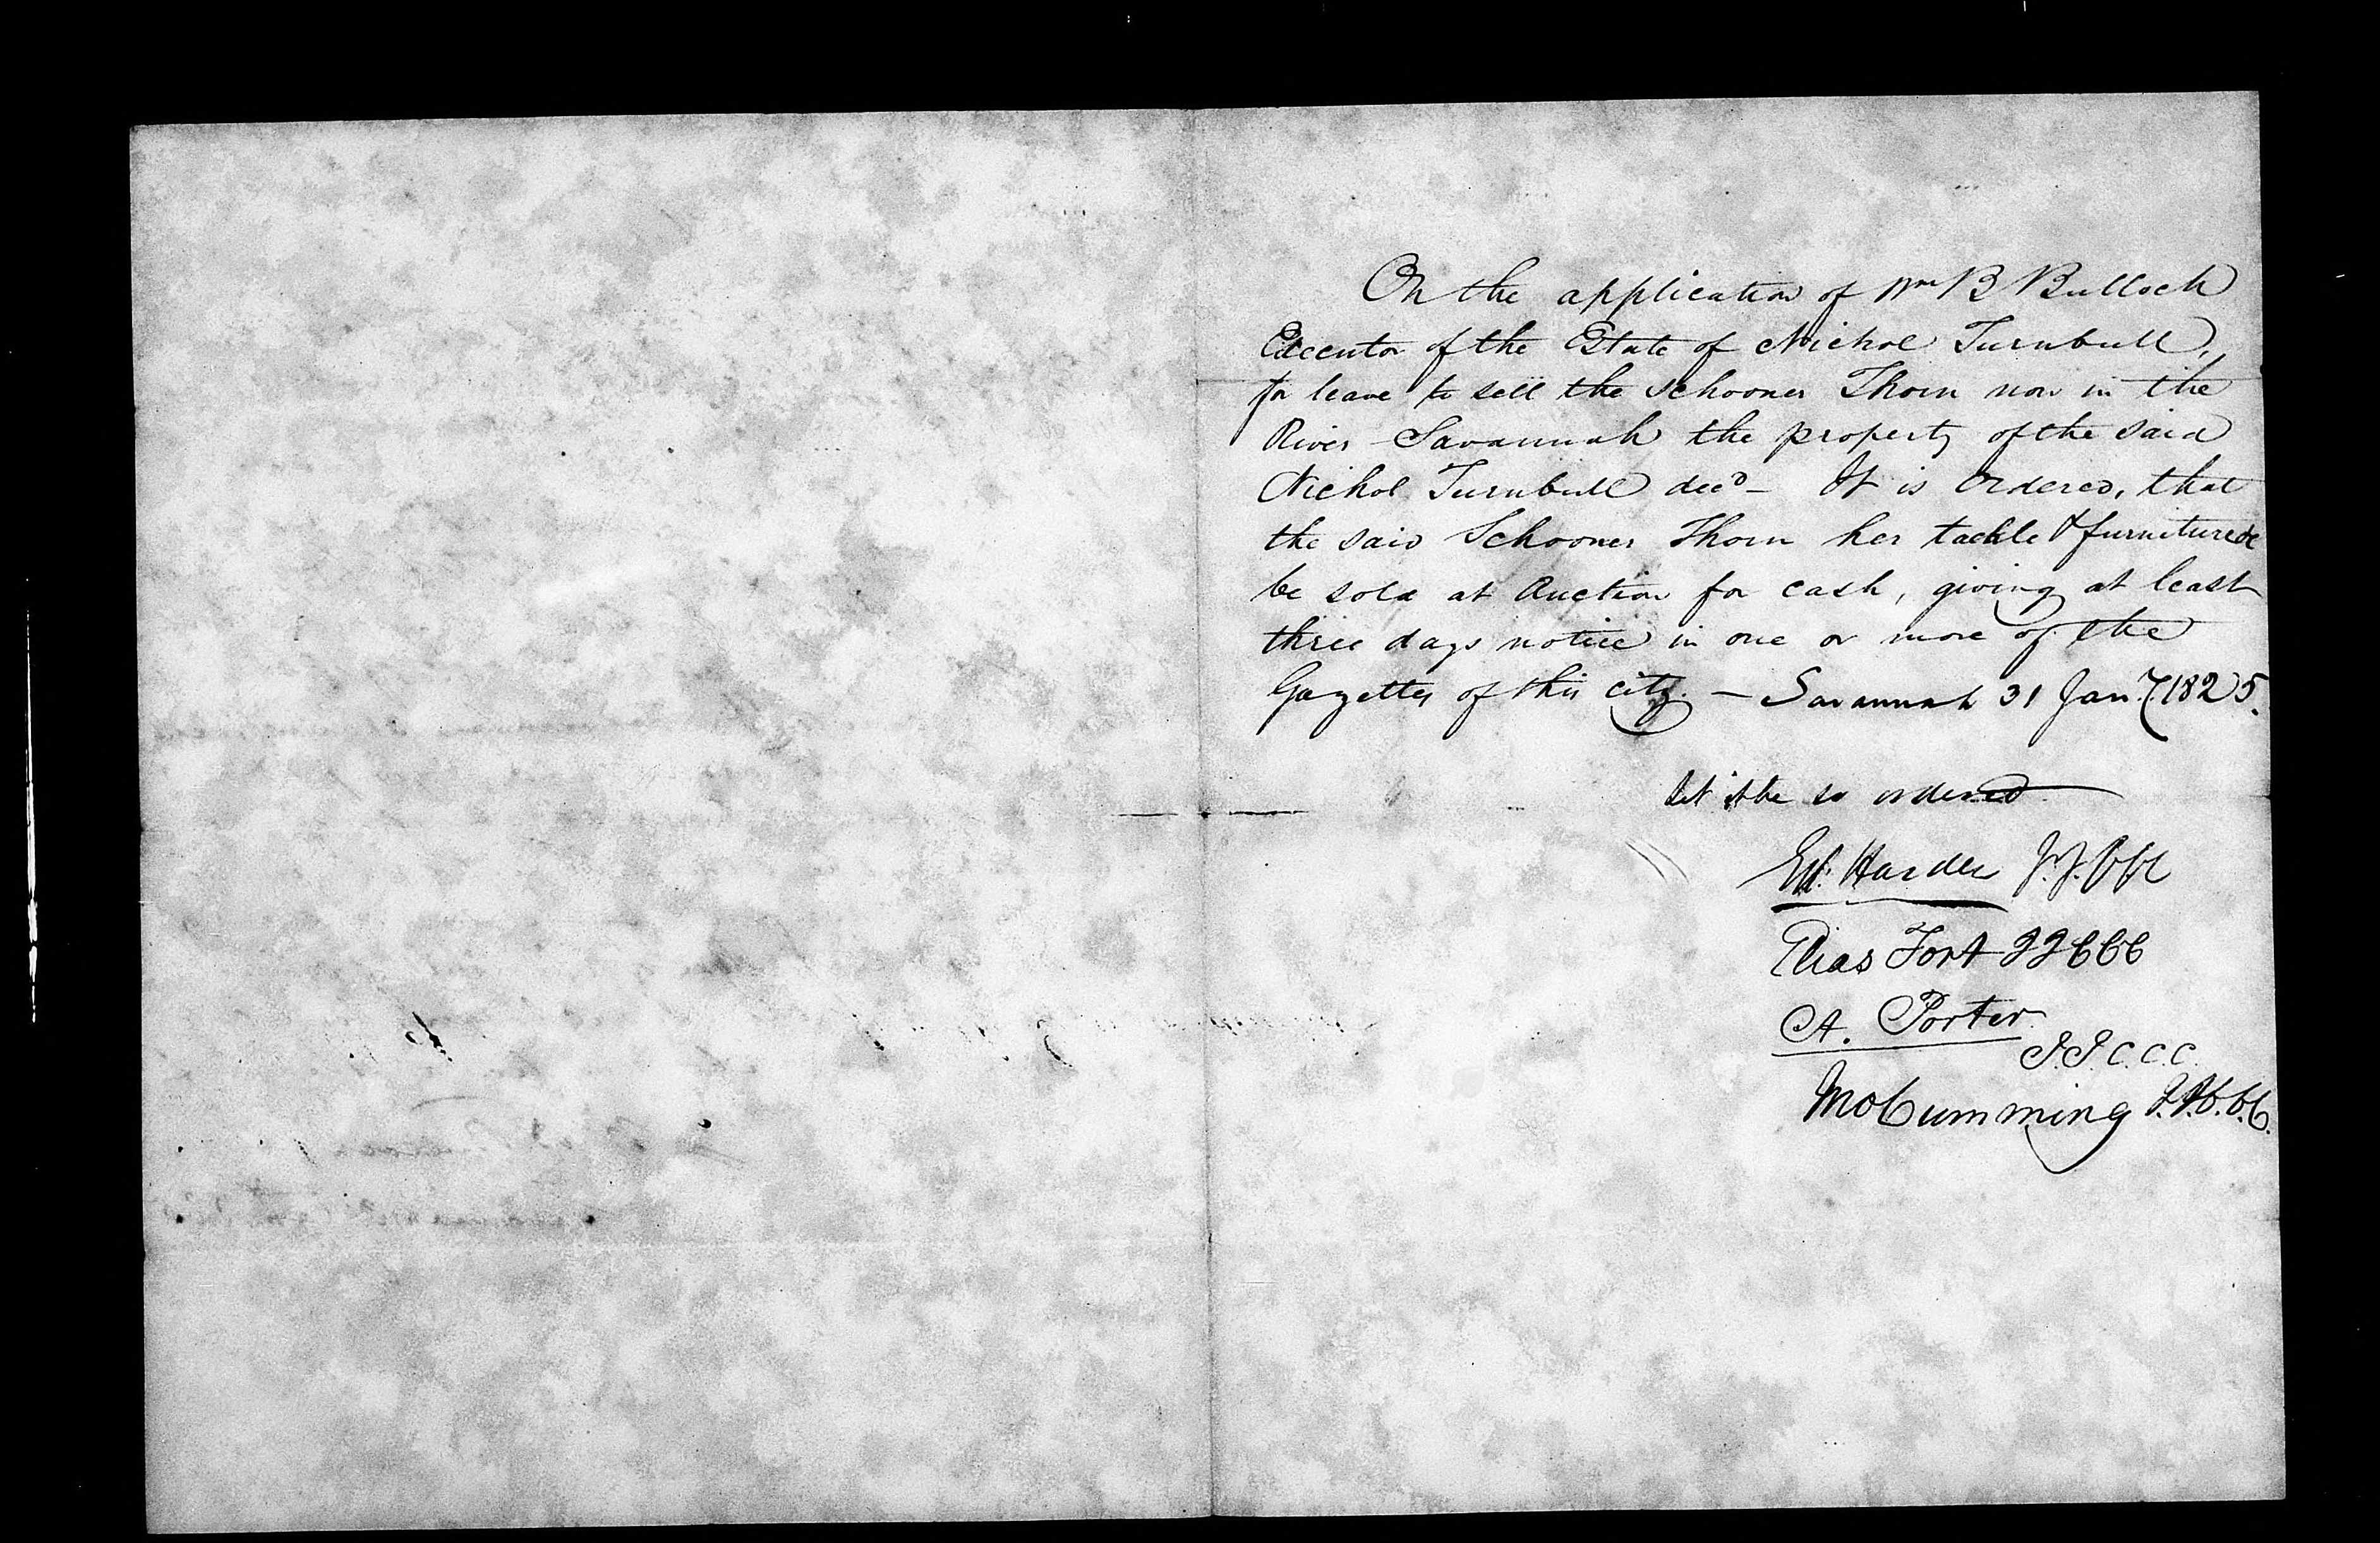 On the application of Wm B Bulloch
Executor of the Estate of Nichol Turnbull,
for leave to sell the Schooner Thorn now in the
River Savannah the property of the said
Nichol Turnbull decd – It is Ordered, that
the said Schooner Thorn her tackle & furniture &c
be sold at Auction for cash, giving at least
three days notice in one or more of the
Gazettes of this city. – Savannah 31 Jany. 1825.
Let it be so ordered
Ed. Harden J.J.C.C.C
Elias Fort JJCCC
A. Porter
J.J.C.C.C.
McCumming J.J.C.C.C.